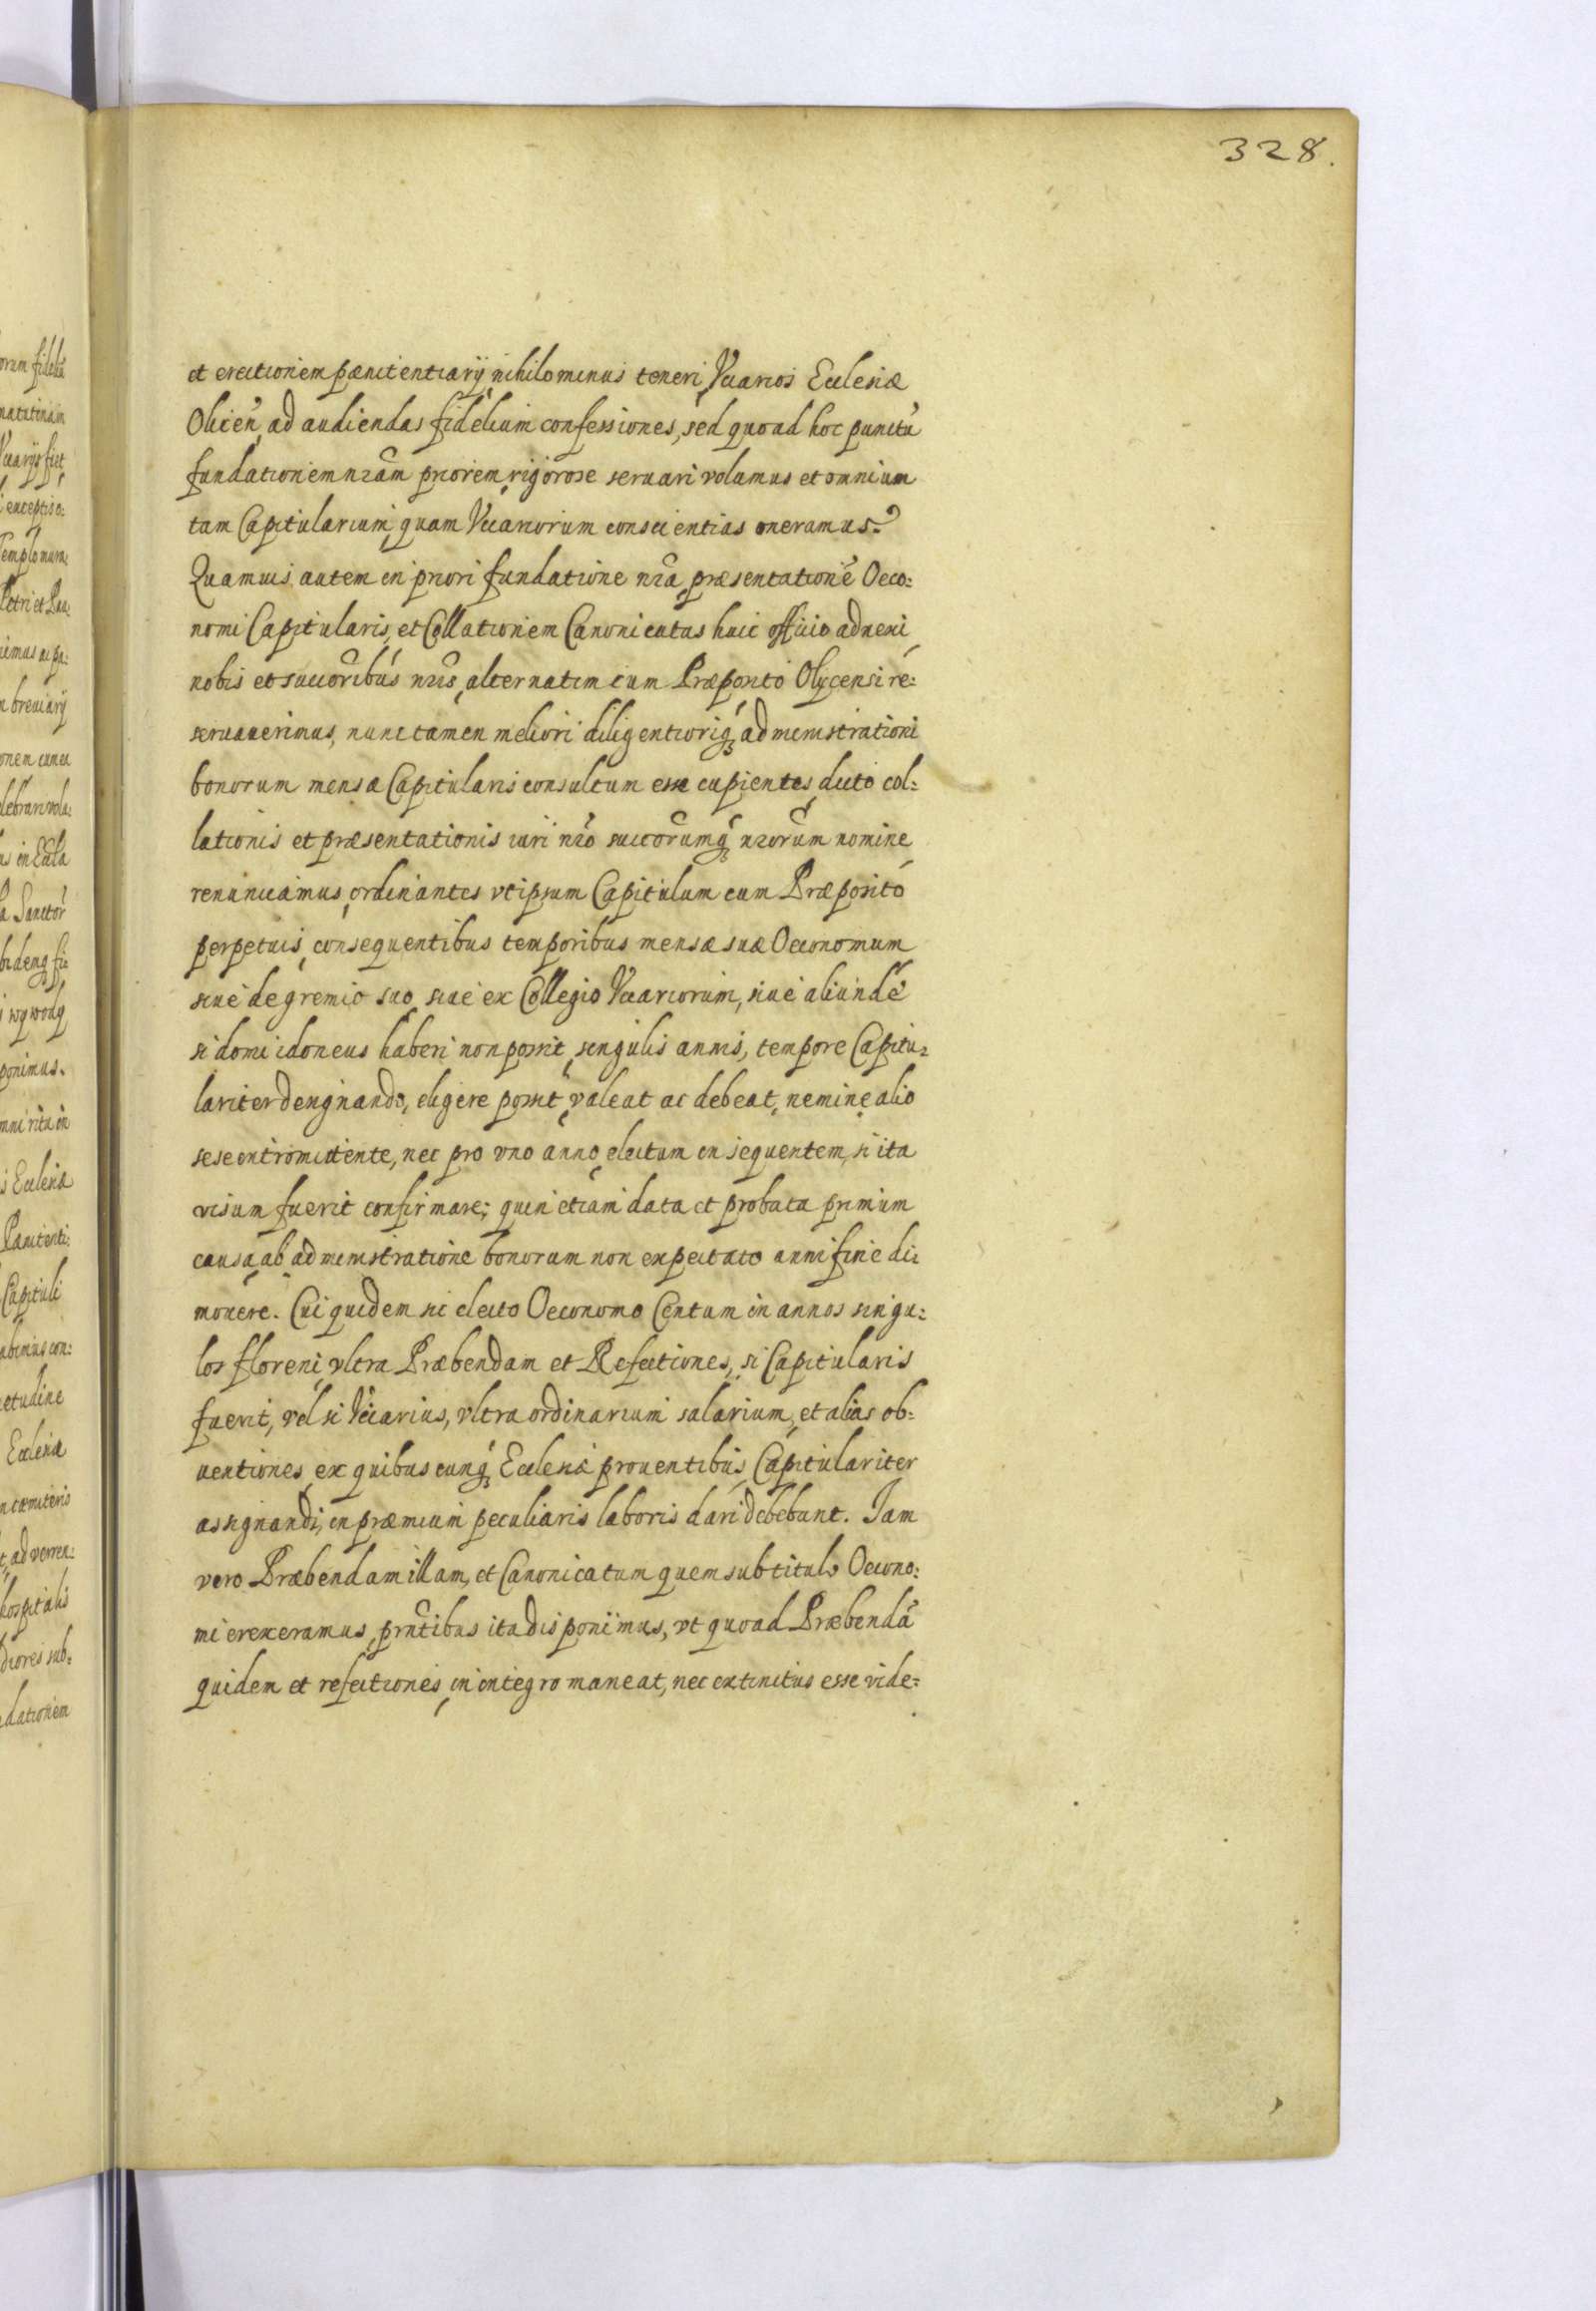 328.
et erectionem pænitentiarij nihilominus teneri Vicarios Ecclesiæ
Olicen̄ ad audiendas fidelium confessiones, sed quoad hoc punctū
fundationem nr̄am priorem rigorose seruari volumus et omnium
tam Capitularium quam Vicariorum conscientias oneramus.
Quamuis autem in priori fundatione nr̄a præsentationē Oeco:
nomi Capitularis, et Collationem Canonicatus huic officio adnexi
nobis et succōribus nr̄is alternatim cum Præposito Olycensi re:
seruauerimus, nunc tamen meliori diligentiorīq; administrationi
bonorum mensæ Capitularis consultum esse cupientes, dicto col:
lationis et præsentationis iuri nr̄o succōrumq; nr̄orum nomine
renunciamus, ordinantes vt ipsum Capitulum cum Præposito
perpetuis, consequentibus temporibus mensæ suæ Oeconomum
siue de gremio suo, siue ex Collegio Vicariorum, siue aliunde
si domi idoneus haberi non possit, singulis annis, tempore Capitu:
lariter designando, eligere possit valeat ac debeat, nemine alio
sese intromittente, nec pro vno anno electum in sequentem, si ita
visum fuerit confirmare; quin etiam data et probata primum
causa, ab administratione bonorum non expectato anni fine di
mouere. Cui quidem sic electo Oeconomo Centum in annos singu:
los floreni, vltra Præbendam et Refectiones, si Capitularis
fuerit, vel si Vicarius, vltra ordinarium salarium, et alias ob:
uentiones ex quibuscunq; Ecclesiæ prouentibus, Capitulariter
assignandi, in præmium peculiaris laboris dari debebunt. Iam
vero Præbendam illam, et Canonicatum quem sub titulo Oecono:
mi erexeramus, prn̄tibus ita disponimus, vt quoad Præbendā
quidem et refectiones, in integro maneat, nec extinctus esse vide:
orum fidelū
matutinam
Vicarijs fiet
exceptis o:
Templo mura:
Petri et Pau:
breuiarij
Sanctōr
ponimus.
Ecclesiæ
Pænitenti:
Capituli
etudine
Ecclesiæ
hospitalis
diores sub:
dationem